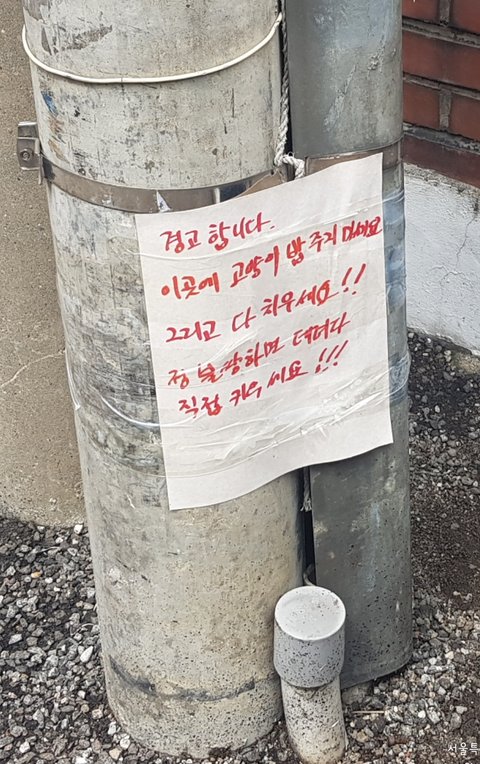 경고 합니다.
이곳에 고양이 밥 주지 마세요
그리고 다 치우세요!!
정 불쌍하면 데려다
직접 키우세요!!!
서울특